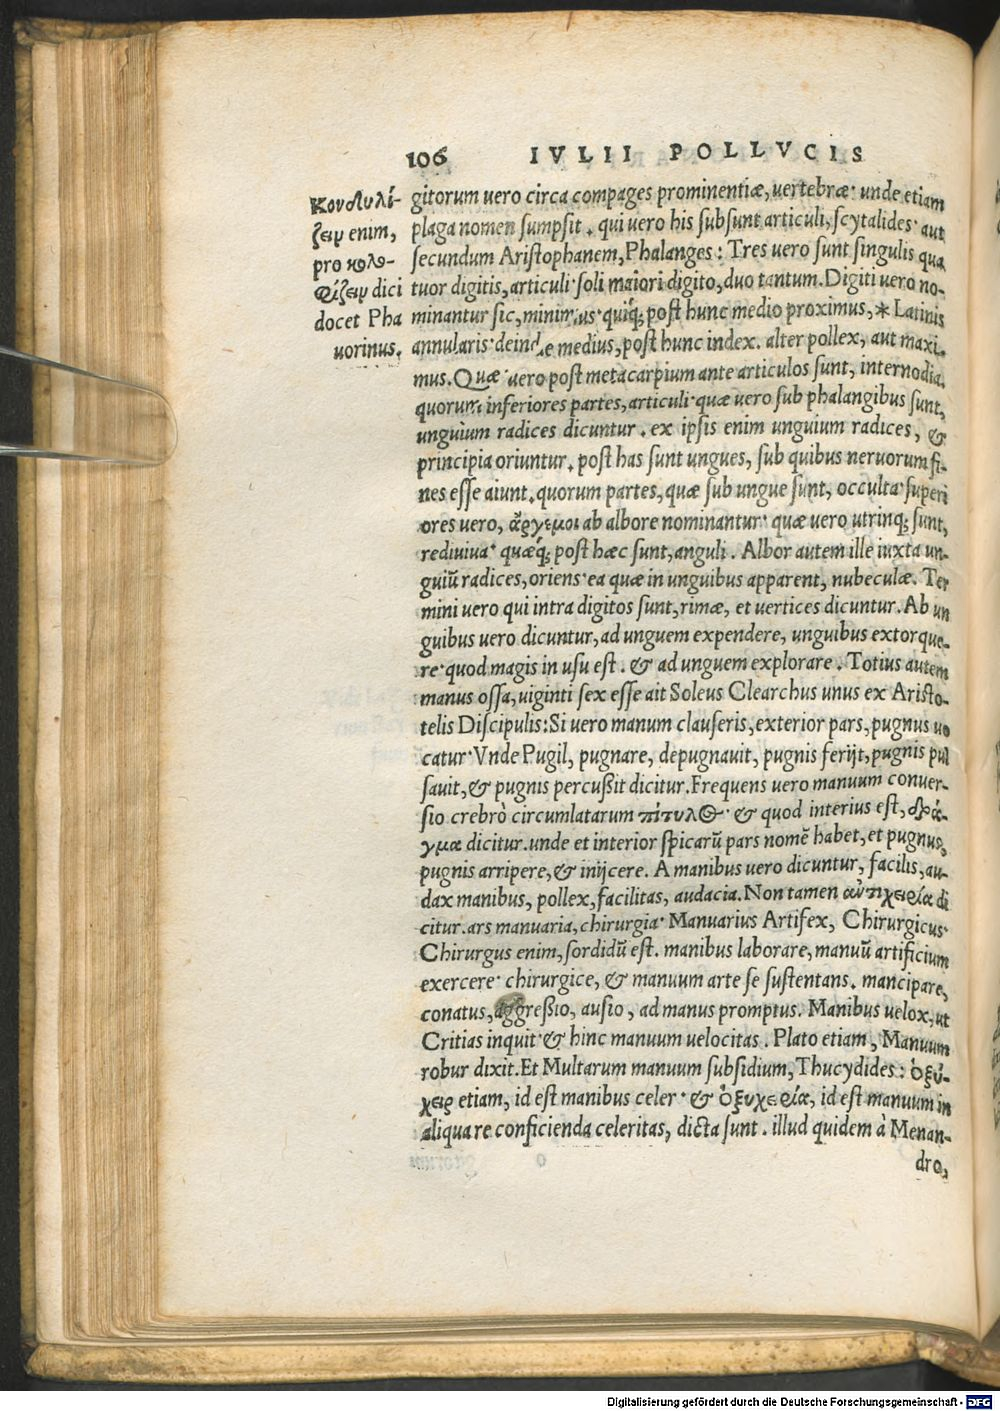 106 IVLII POLLVCIS
Κονδυλί-
ζειν enim,
pro κολα-
φίζειν dici
docet Pha
uorinus.
gitorum uero circa compages prominentiæ, uertebræ· unde etiam
plaga nomen sumpsit. qui uero his subsunt articuli, scytalides· aut
secundum Aristophanem, Phalanges: Tres uero sunt singulis qua
tuor digitis, articuli· soli maiori digito, duo tantum. Digiti uero no-
minantur sic, minimus· quiq́; post hunc medio proximus, * Latinis
annularis· deinde medius, post hunc index. alter pollex, aut maxi
mus. Quæ uero post metacarpium ante articulos sunt, internodia,
quorum inferiores partes, articuli· quæ uero sub phalangibus sunt,
unguium radices dicuntur. ex ipsis enim unguium radices, &
principia oriuntur. post has sunt ungues, sub quibus neruorum fi-
nes esse aiunt. quorum partes, quæ sub ungue sunt, occulta· superi
ores uero, ἄργεμοι ab albore nominantur· quæ uero utrinq; sunt,
rediuiua· quæq́; post hæc sunt, anguli. Albor autem ille iuxta un-
guiũ radices, oriens· ea quæ in unguibus apparent, nubeculæ. Ter
mini uero qui intra digitos sunt, rimæ, et uertices dicuntur. Ab un
guibus uero dicuntur, ad unguem expendere, unguibus extorque-
re· quod magis in usu est. & ad unguem explorare. Totius autem
manus ossa, uiginti sex esse ait Soleus Clearchus unus ex Aristo-
telis Discipulis: Si uero manum clauseris, exterior pars, pugnus uo
catur· Vnde Pugil, pugnare, depugnauit, pugnis ferijt, pugnis pul
sauit, & pugnis percußit dicitur. Frequens uero manuum conuer-
sio crebrò circumlatarum πίτυλος· & quod interius est, δρά-
γμα dicitur. unde et interior spicarũ pars nomē habet, et pugnus,
pugnis arripere, & inijcere. A manibus uero dicuntur, facilis, au-
dax manibus, pollex, facilitas, audacia. Non tamen αὐτιχειρία di
citur. ars manuaria, chirurgia· Manuarius Artifex, Chirurgicus·
Chirurgus enim, sordidũ est. manibus laborare, manuũ artificium
exercere· chirurgice, & manuum arte se sustentans. mancipare,
conatus, aggreßio, ausio, ad manus promptus. Manibus uelox, ut
Critias inquit· & hinc manuum uelocitas. Plato etiam, Manuum
robur dixit. Et Multarum manuum subsidium, Thucydides: ὀξύ-
χειρ etiam, id est manibus celer· & ὀξυχειρία, id est manuum in
aliqua re conficienda celeritas, dicta sunt. illud quidem à Menan-
dro,
Digitalisierung gefördert durch die Deutsche Forschungsgemeinschaft - DFG